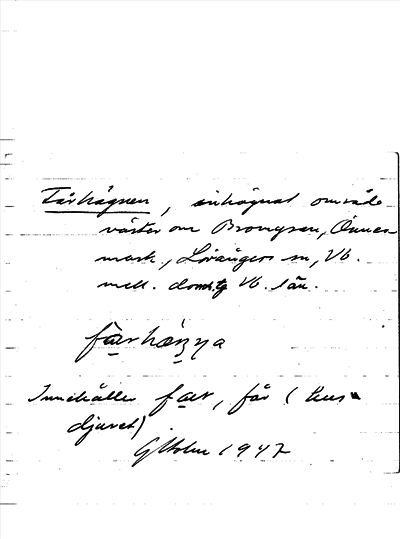 Fårhägnen, inhägnat område
väster om Brongsen, Önnes
mark, Lövångers sn, Vb.
mell. doms. Vb. län.
Innehåller far, får (hus-
djuret)
G Holm 1947